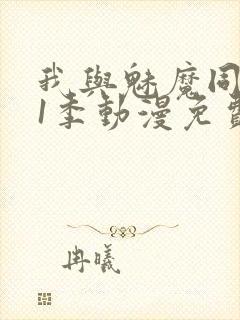 我與魅魔同
1季動漫免費
冉曦